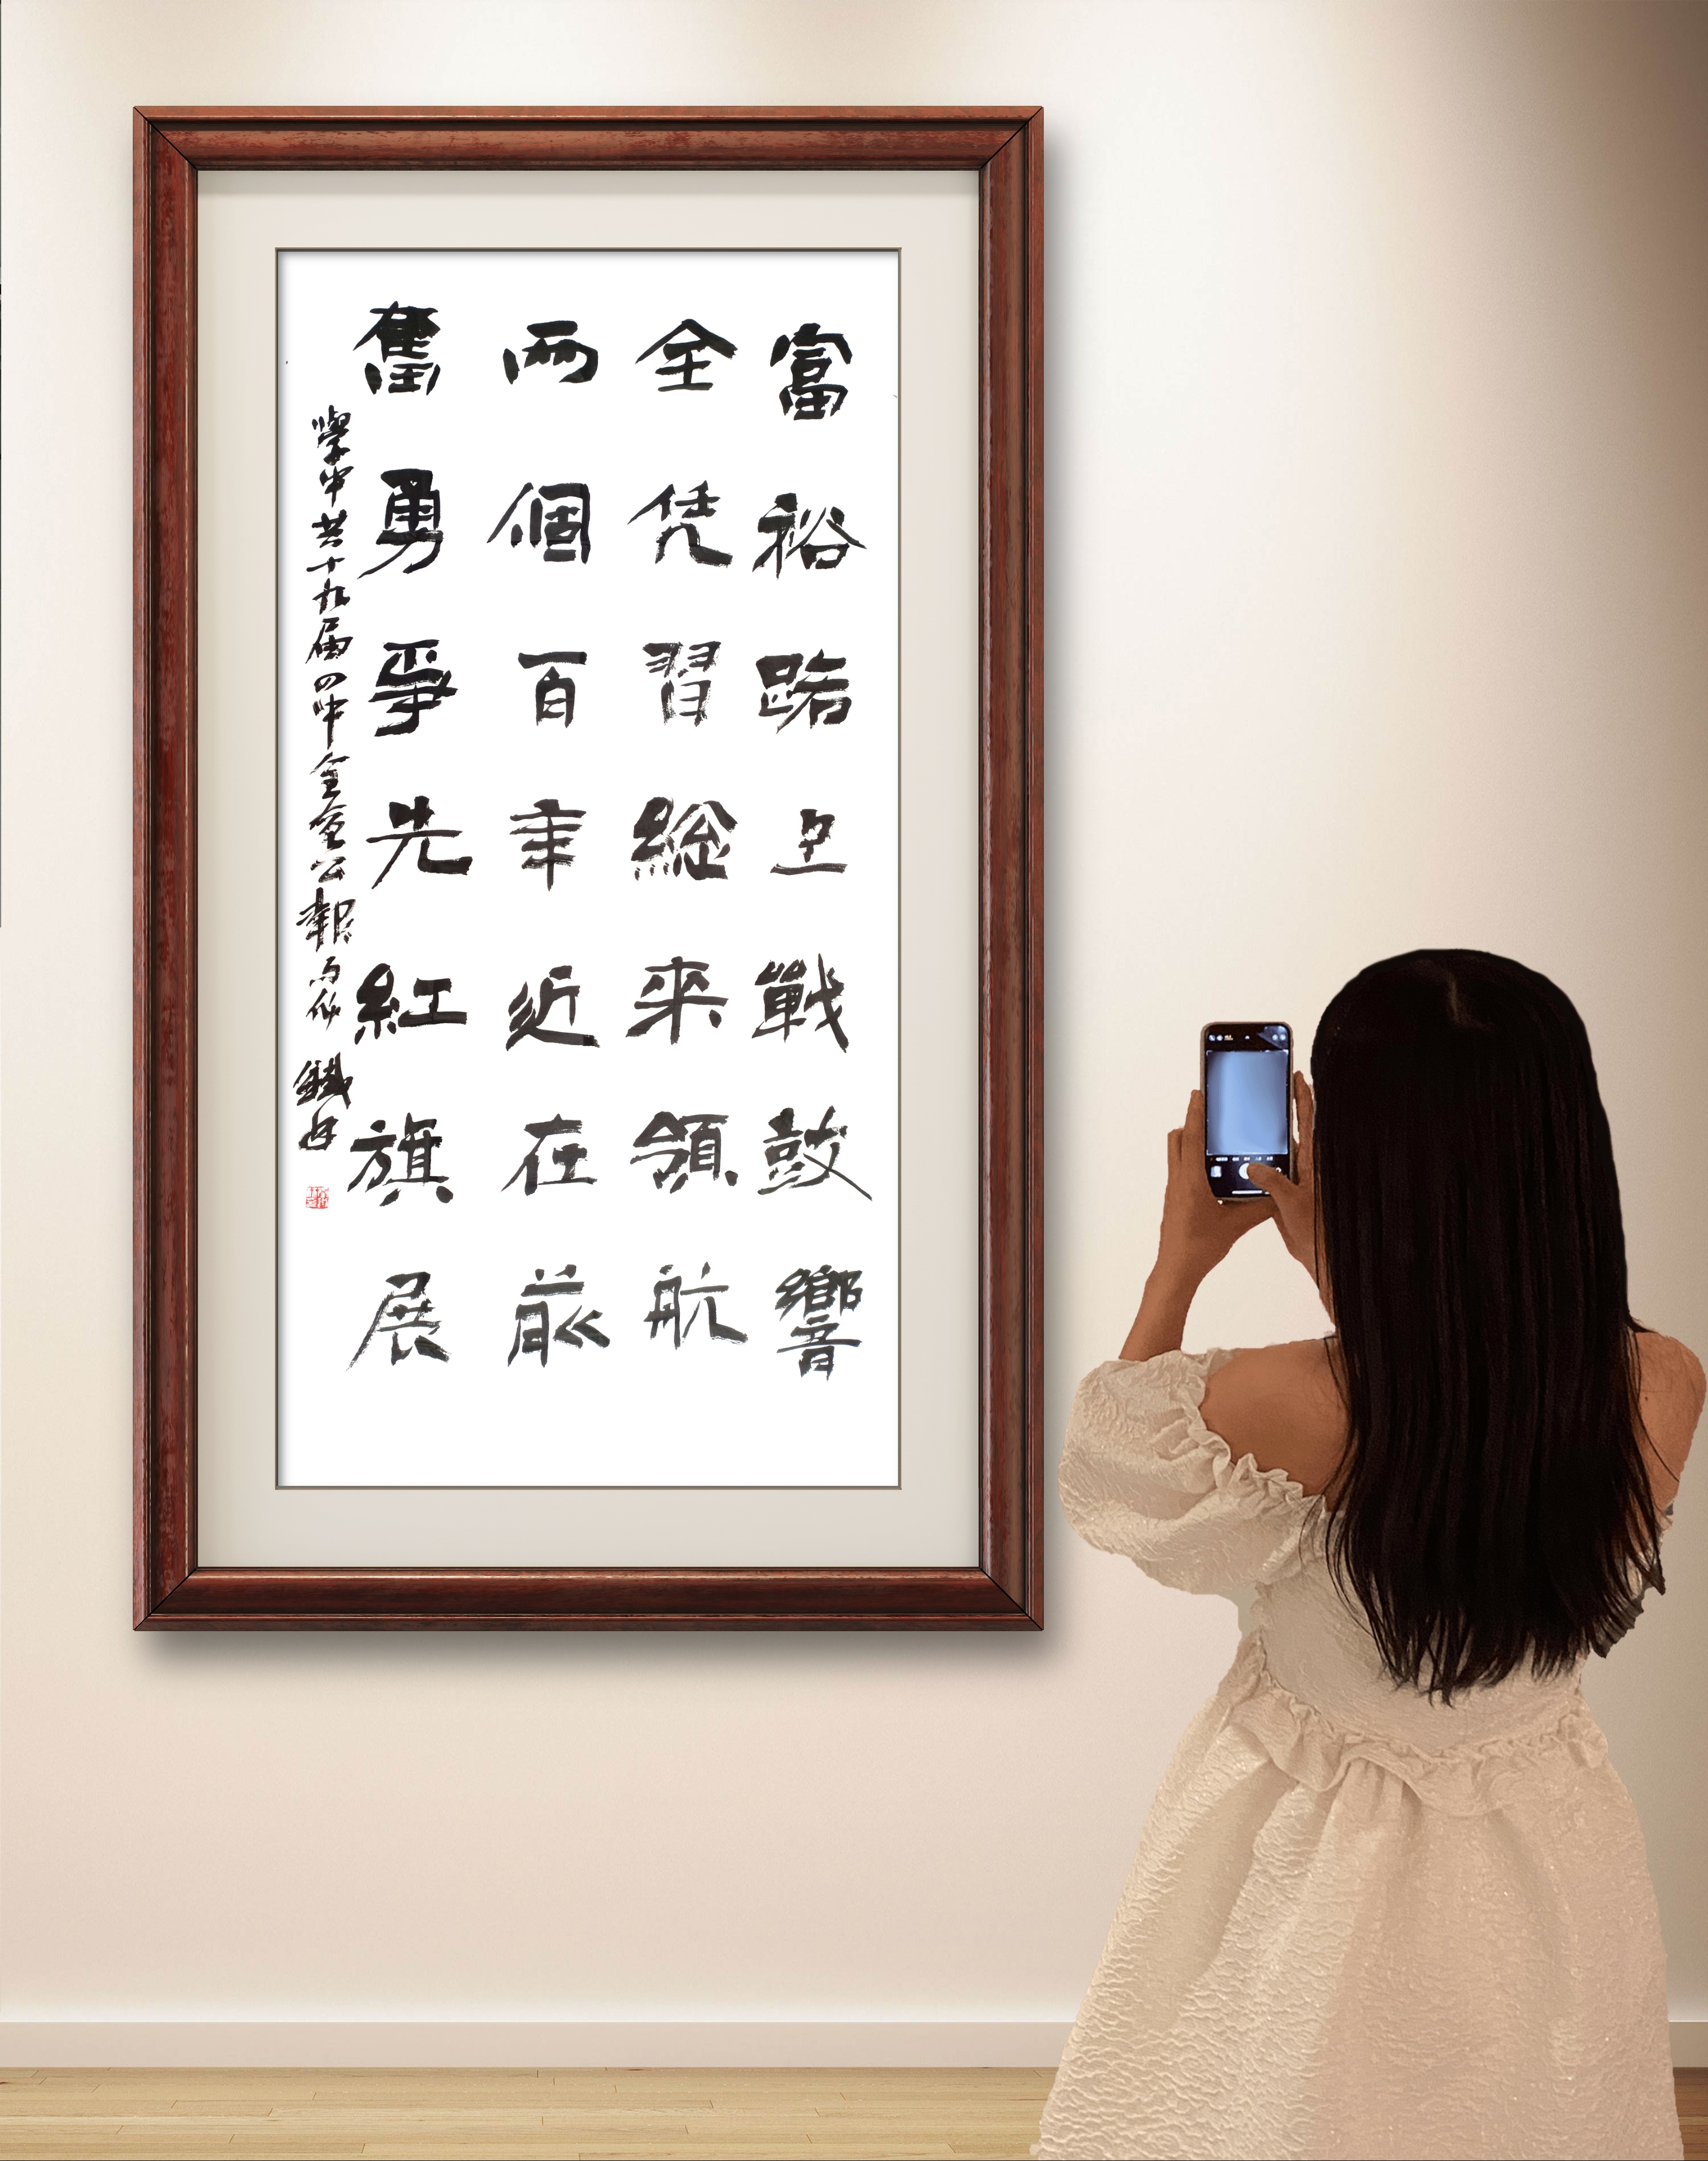 富裕路上戰鼓響
全凭習総来領航
両個百年近在前
奮勇爭先紅旗展
學中共十九届四中全會公報而作 鐵安